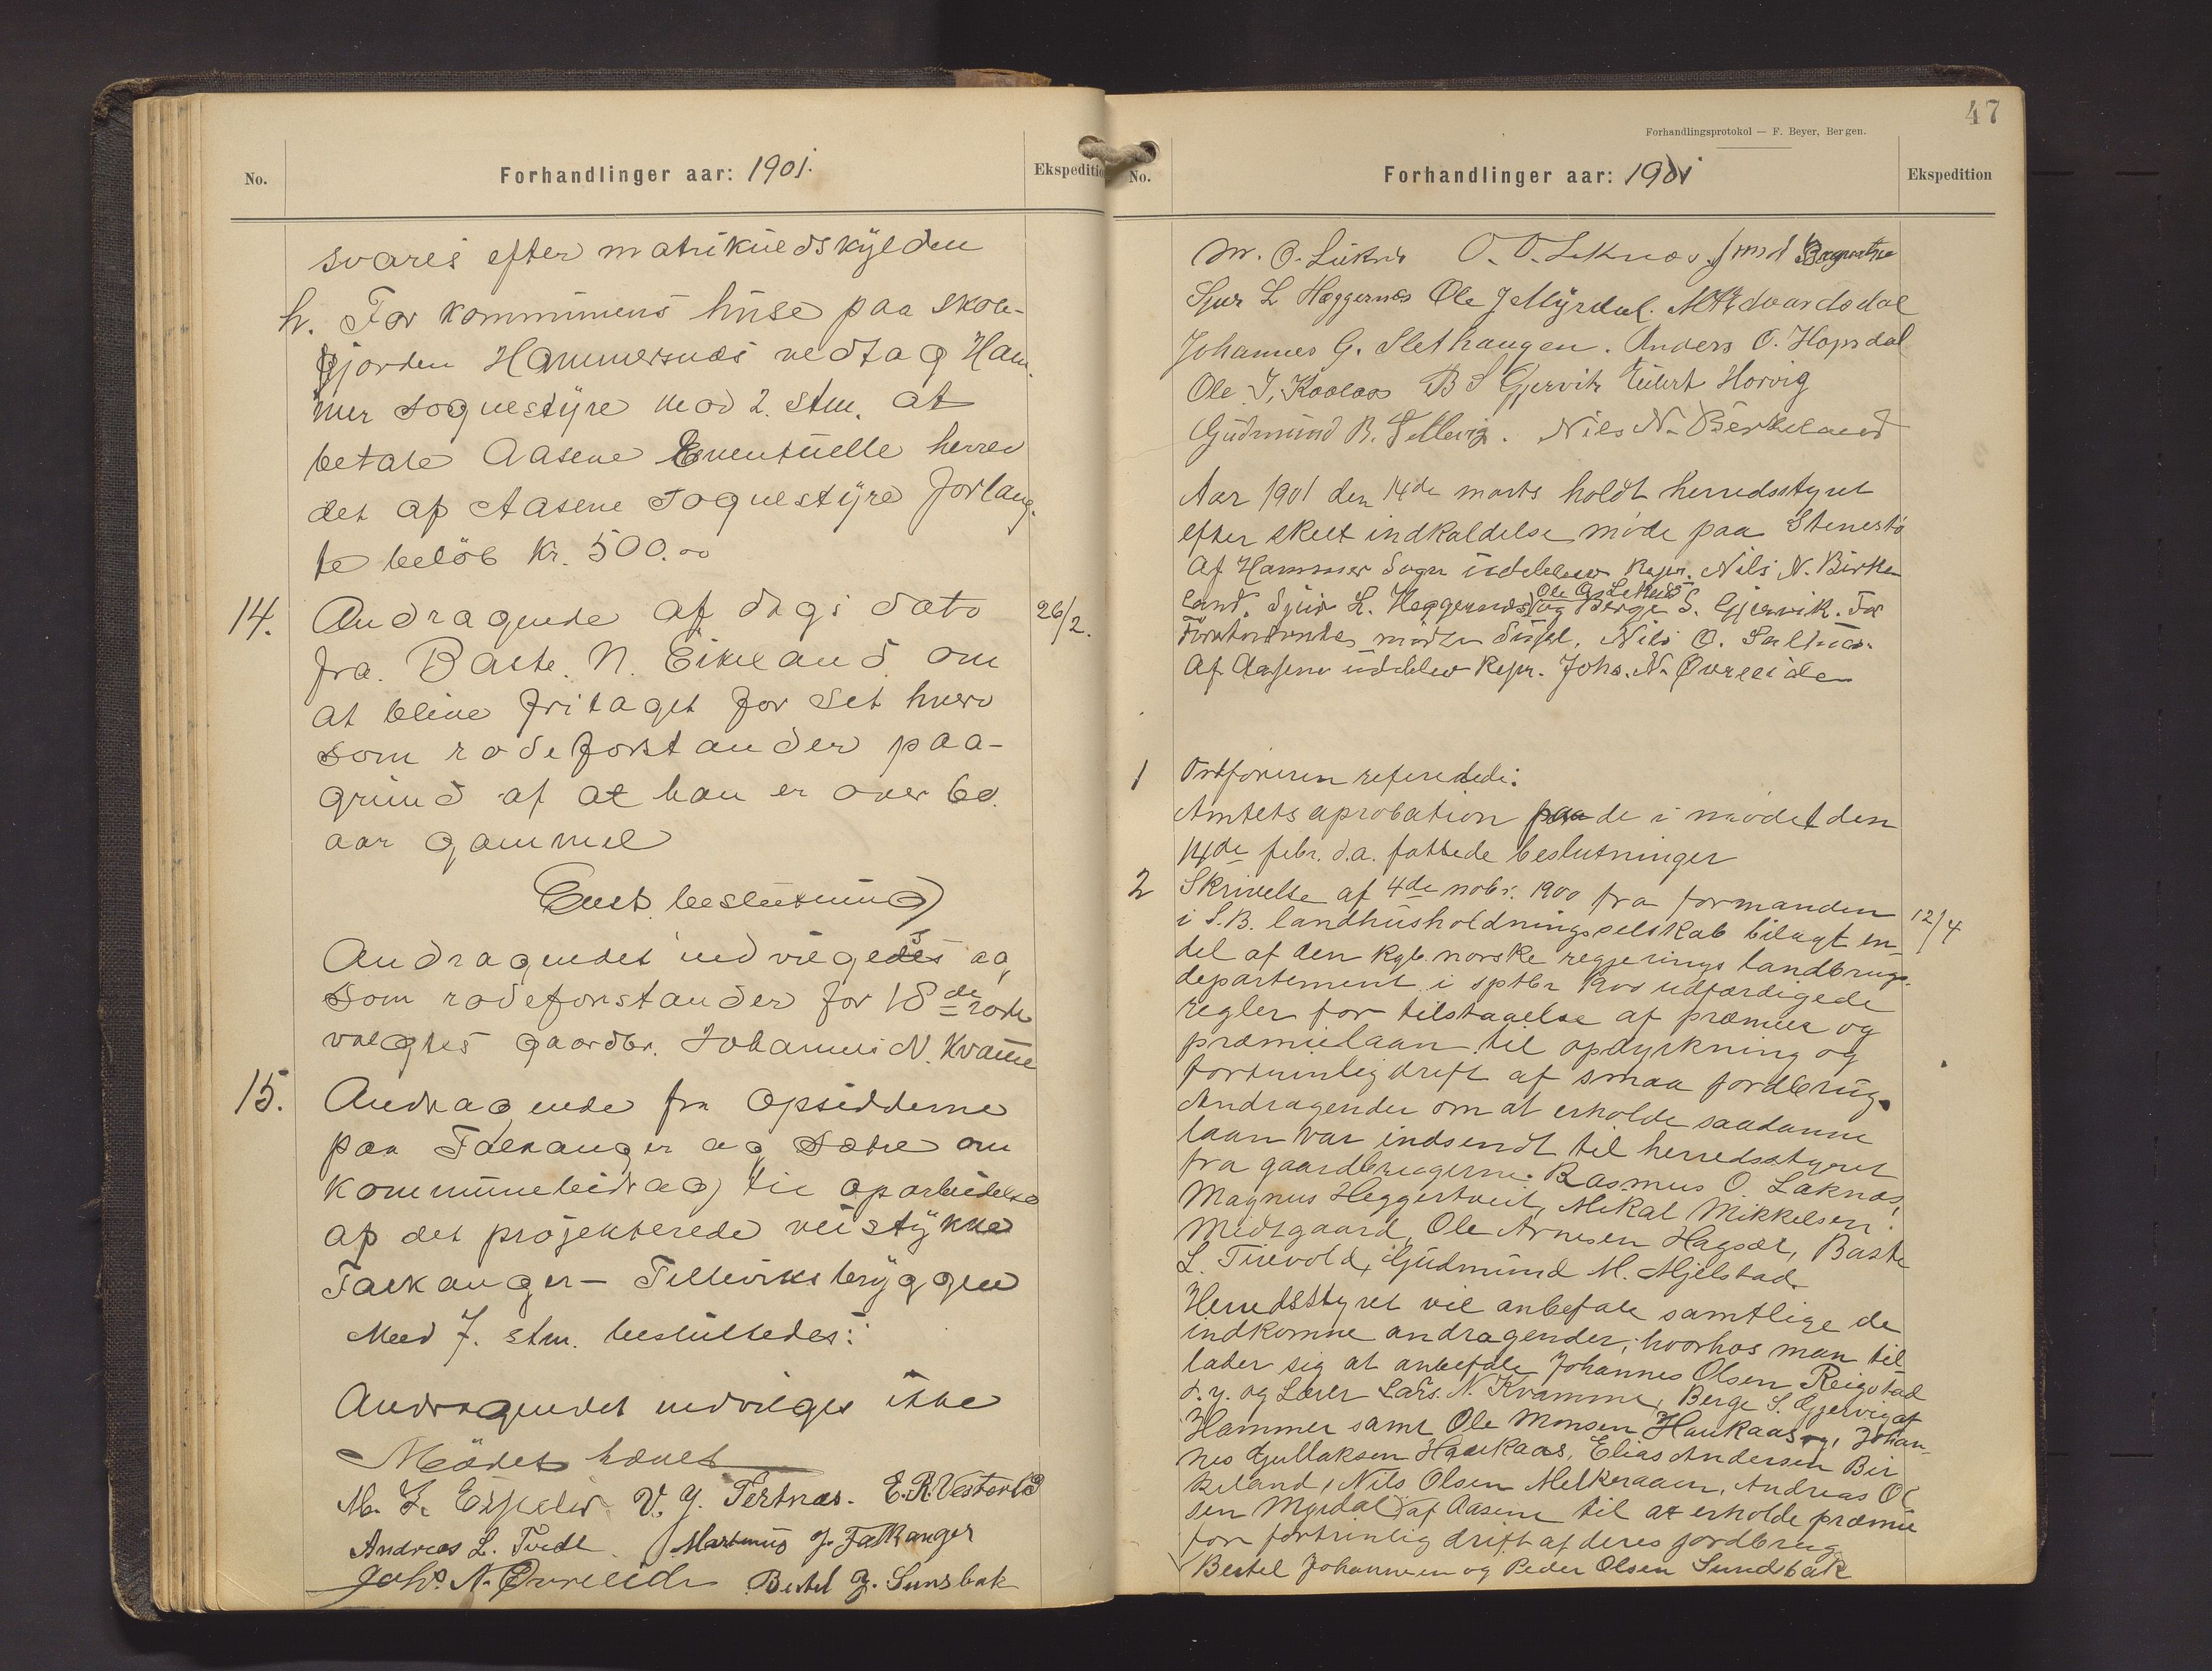 No.
Forhandlinger aar: 1901.
Ekspedition
svares efter matrikuldskylden
h. For kommunens huse paa skole-
gjorden Hammersnæs vedtag Ham-
mer sognestyre mod 2. stm. at
betale Aasene Eventuelle herre
det af Aasene Sognestyre forlang-
te belöb Kr. 500.00
14. Andragende af dags dato 26/2.
fra. Baste. N. Eikeland om
at blive fritaget for det hverv
som rodeforstander paa-
grund af at han er over 60.
aar gammel
Enst. beslutning
Andragendet indvilgedes og
som rodeforstander for 18de rode
valgtes gaardbr. Johannes N. Kvamme
15. Andragende fra Opsidderne
paa Falkanger og Sætre om
kommunebidrag til oparbeidelse
af det projekterede veistykke
Falkanger – Telleviksbryggen
Med 7. stm. besluttedes:
Andragendet indvilges ikke
Mödet hævet
M. L. V. J. Tertnæs. E. R. Vestorlo
Andreas L. Tvedt Martinus J. Falkanger
Johs N. Øvreeide Bertel J. Sunsbak
47
Forhandlingsprotokol — F. Beyer, Bergen.
No.
Forhandlinger aar: 1901
Ekspedition
M. O. O. O. Leknæs.
Sjur L Heggernæs Ole J Myrdal. M Edvardsdal
Johannes G. Slethaugen. Anders O. Hopsdal
Ole J. Kaalaas B S Gjervik Eilert Horvig
Gudmund B. Tellevig. Nils N. Birkeland
Aar 1901 den 14de marts holdt herredsstyret
efter skeet indkaldelse möde paa Stenestö
Af Hammer Sogn udeblev Repr. Nils N. Birke
land, Sjur L. Heggernæs, og Berge S. Gjervik. For
Ole A. Leknes
möder Supl. Nils O.
Af Aasene udeblev Repr. Johs. N. Øvreeide
1 Ordföreren refererede:
Amtets aprobation paa de i mödet den
14de febr. d.a. fattede beslutninger
2 Skrivelse af 4de nobr. 1900 fra formanden 12/4
i S.B. landhusholdningsselskab bilagt en
del af den kgl. norske regjerings landbrugs-
departement i sptbr 1900 udfærdigede
regler for tilstaaelse af præmier og
præmielaan til opdyrkning og
fortrinlig drift af smaa jordbrug.
Andragender om at erholde saadanne
laan var indsendt til herredsstyret
fra gaardbrugerne. Rasmus O. Laknæs,
Magnus Heggertveit, Mikal Mikkelsen
Midtgaard, Ole Arnesen Hagsæt, Baste
L. Tirevold, Gudmund M. Mjelstad
Herredsstyret vil anbefale samtlige de
indkomne andragender; hvorhos man til-
lader sig at anbefale Johannes Olsen Reigstad
d.y. og Lærer Lars. N. Kvamme, Berge S. Gjervig af
Hammer samt Ole Monsen Haukaas, Johan-
nes Gullaksen Haukaas, Elias Andersen Bir
keland, Nils Olsen Melkeraaen, Andreas Ol
sen Myrdal af Aasene til at erholde præmie
for fortrinlig drift af deres jordbrug
Bertel Johannesen og Peder Olsen Sundsbak